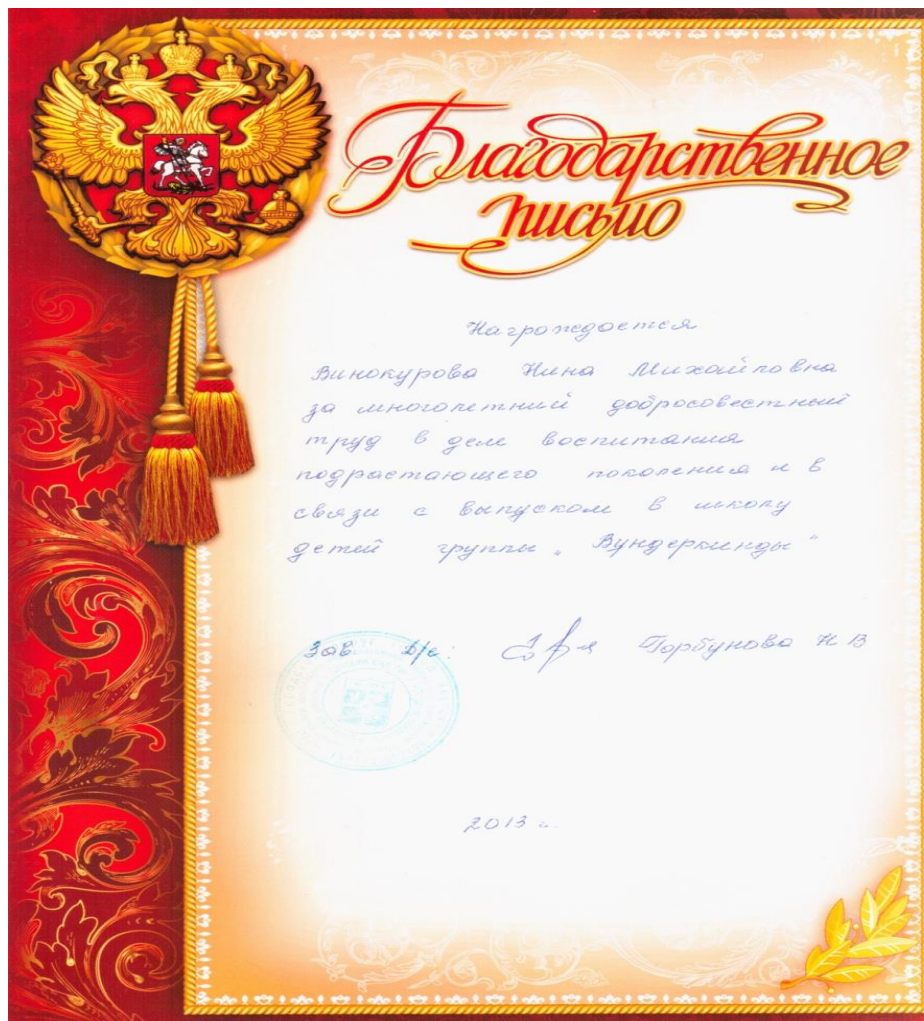 Благодарственное
письмо
Награждается
Винокурова Нина Михайловна
за многолетний добросовестный
труд в деле воспитания
подрастающего поколения и в
связи с выпуском в школу
детей группы „Вундеркинды“
Зав. д/с: Горбунова Н В
2013 г.